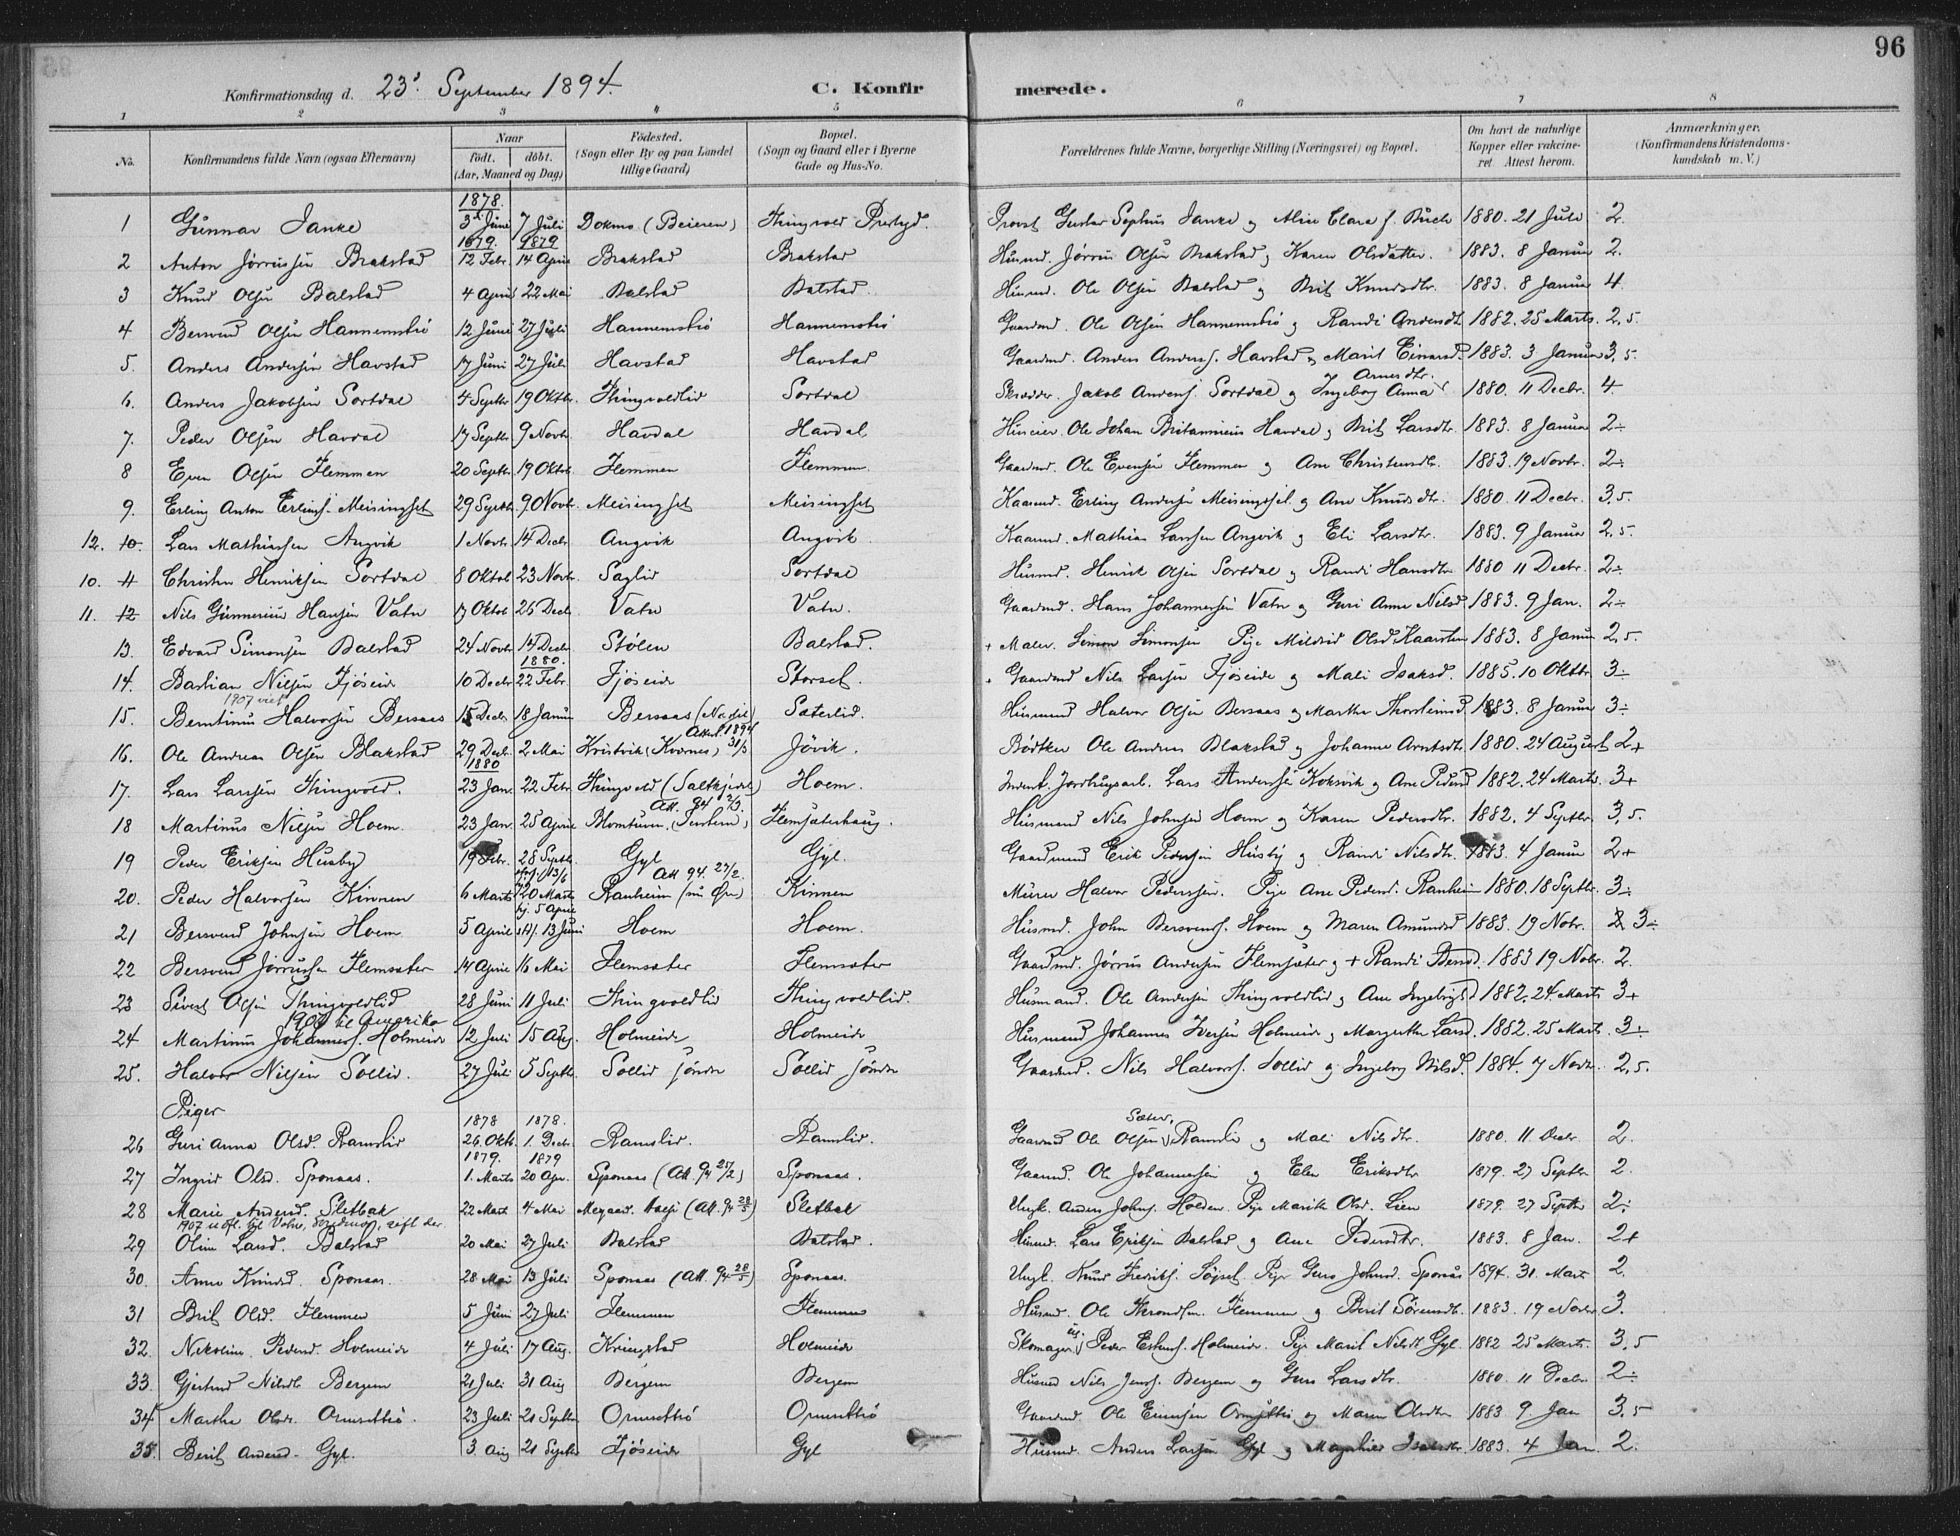 96
Konfirmationsdag d. 23d September 1894.
C. Konfirmerede.
1 2 3 4 5 6 7 8
No. Konfirmandens fulde Navn (ogsaa Efternavn) Naar født. døbt. (Aar, Maaned og Dag) Fødested. (Sogn eller By og paa Landet tillige Gaard) Bopæl. (Sogn og Gaard eller i Byerne Gade og Hus-No. Forældrenes fulde Navne, borgerlige Stilling (Næringsvei) og Bopæl. Om havt de naturlige Kopper eller vakcineret. Attest herom. Anmærkninger. (Konfirmandens Kristendomskundskab m. V.)
1878.
1 Gunnar Janke 3 Juni 7 Juli Dokmo (Beieren) Thingvold Prestgd. Provst Gustav Sophus Janke og Alvie Clara f. Buch 1880. 21 Juli 2.
1879. 1879
2 Anton Jørrissen Brakstad 12 Febr. 14 April Brakstad Brakstad Husmd. Jørris Olsen Brakstad og Karen Olsdatter. 1883. 8 Januar 2.
3 Knud Olsen Balstad 4 April 22 Mai Balstad Balstad. Husmd. Ole Olsen Balstad og Brit Knudsdtr. 1883. 8 Januar 4.
4 Bersvend Olsen Hannemsbø 12 Juni 27 Juli Hannemsbø Hannemsbø Gaardmd. Ole Olsen Hannemsbø og Randi Andersdt. 1882. 25 Marts 2,5.
5. Anders Andersen Havstad 17 Juni 27 Juli Havstad Havstad Gaardmd. Anders Anders. Havstad og Marit Einarsd. 1883. 3 Januar 3,5.
6. Anders Jakobsen Sortdal 4 Septbr. 19 Oktbr. Thingvoldlid Sortdal Skrædder. Jakob Anders. Sortdal og Ingeborg Anna Arnesdtr. 1880. 11 Decbr. 4.
7. Peder Olsen Havdal 17 Septbr. 9 Novbr. Havdal Havdal Huseier. Ole Johan Britannicus Havdal og Brit Larsdtr. 1883. 8 Januar 2÷
8 Even Olsen Flemmen 20 Septbr. 19 Oktob. Flemmen Flemmen Gaardmd. Ole Evensen Flemmen og Ane Christensdtr. 1883. 19 Novbr. 2÷
9. Erling Anton Erlings. Meisingset 29 Septbr. 9 Novbr. Meisingset Meisingset Kaarmd. Erling Andersen Meisingset og Ane Knudsdtr. 1880. 11 Decbr. 3,5.
12. 10. Lars Mathiassen Angvik 1 Novbr. 14 Decbr. Angvik Angvik. Kaarmd. Mathias Larssen Angvik og Eli Larsdtr. 1883. 9 Januar 2,5.
10. 11 Christen Henriksen Sortdal 8 Oktob. 23 Novbr. Saglid Sortdal Husmd. Henrik Olsen Sortdal og Randi Hansdtr. 1880 11 Decbr. 2÷
11. 12 Nils Gunnerius Hansen Vatn 17 Oktob. 26 Decb. Vatn Vatn. Gaardmd. Hans Johannessen Vatn og Guri Anne Nilsd. 1883. 9 Jan. 2÷
13. Edvard Simonsen Balstad 24 Novbr. 14 Decbr. Stølen Balstad. + Maler. Simon Simonsen Pige Mildrid Olsd. Kaarsten 1883. 8 Januar 2,5.
1880.
14. Bastian Nilsen Fjøseide 10 Decbr. 22 Febr. Fjøseide Storset. Gaardmd Nils Larsen Fjøseide og Mali Isaksd. 1885. 10 Oktbr. 3÷
1907 viet
15. Berntinus Halvorsen Bersaas 15 Decbr. 18 Januar Bersaas Sæterlid. Husmand Halvor Olsen Bersaas og Marthe Thorsteinsd. 1883. 8 Januar 3÷
16. Ole Andreas Olsen Blakstad 29 Decb. 2 Mai Kristvik (Kvernes) Attest. 1894 31/3 Jøvik. Bødtker Ole Anders Blakstad og Johanne Arntsdtr. 1880. 24 August 2+
1880
17. Lars Larssen Thingvold. 23 Jan. 22 Febr. Thingvold (Saltkjelen) Hoem. Inderst. Jordbrugsarb. Lars Andersen Koksvik og Ane Pedersd 1882. 24 Marts 3+
18 Martinus Nilsen Hoem. 23 Jan. 25 April Blomtuven. Att. 94 2/3. Flemsæterhaug. Husmand Nils Johnsen Hoem og Karen Pedersdtr. 1882. 4 Septbr. 3,5.
19 Peder Eriksen Husby 19 Febr. 28 Septb. Gyl Gyl. Gaardmand Erik Pedersen Husby og Randi Nilsdtr. 1883. 4 Januar 2+
20. Peder Halvorsen Kinnen 6 Marts 20 Marts Ranheim (nu Øre) Att 94. 27/2. Kinnen Murer Halvor Pedersen. Pige Ane Pedersd. Ranheim 1880. 18 Septbr. 3÷
21 Bersvend Johnsen Hoem 5 April hj. 5 April st.f. 13 Juni Hoem Hoem. Husmd. John Bersvends. Hoem og Maren Amundsd 1883. 19 Nobr. 3÷
22 Bersvend Jørrissen Flemsæter 14 April 16 Mai Flemsæter Flemsæter Gaardmd. Jørris Andersen Flemsæter og + Randi Bersd. 1883 19 Nobr. 2.
23 Sivert Olsen Thingvoldlid 28 Juni 11 Juli Thingvoldlid Thingvoldlid. Husmand. Ole Andersen Thingvoldlid og Ane Ingebrigtsd 1882. 24 Marts 3+
1907 til Amerika
24 Martinus Johannes. Holmeide 12 Juli 15 Aug. Holmeide Holmeide Husmand Johannes Iversen Holmeide og Margrethe Larsd. 1882. 25 Marts. 3÷
25. Halvor Nilsen Sollid. 27 Juli 5 Septb. Sollid søndre Sollid søndre Gaardmd. Nils Halvors. Sollid og Ingeborg Nilsd. 1884. 7 Novbr. 2,5.
Piger
1878 1878.
26 Guri Anna Olsd. Ramslid 26. Oktb. 1. Decbr. Ramslid. Ramslid. Gaardmd Ole Olsen Sæter, Ramsli og Mali Nilsdtr. 1880. 11. Decbr. 2.
1879. 1879
27 Ingrid Olsd. Sponaas. 1. Marts 20 Apr. Sponaas (Att. 94 27/2) Sponaas. Gaardmd. Ole Johannessen og Elen Eriksdtr 1879. 27 Septbr. 2.
28 Marie Andersd. Sletbak 22 Marts 4 Mai (Att. 94 28/5) Sletbak Ungk. Anders Johns. Holden. Pige Marith Olsd. Lien 1879. 27 Septbr 2÷
29 Oline Larsd. Balstad 20 Mai 27 Juli Balstad Balstad. Husmd. Lars Eriksen Balstad og Ane Pedersdtr. 1883. 8 Jan. 2+
30. Anne Knudsd. Sponaas. 28 Mai 13 Juli Sponaas (Att. 94 28/5) Sponaas. Ungk. Knud Fredriks. Pige Guro Johnsd. Sponaas 1894. 31. Marts 2.
31 Brit Olsd. Flemmen 5 Juni 27 Juli Flemmen Flemmen Husmd. Ole Throndsen. Flemmen og Berit Sörensdt. 1883. 19 Novbr. 3.
32. Nikoline Pedersd. Holmeide 4 Juli 17 Aug. Kringstad Holmeide Skomager, Peder Holmeide. Pige Marit Nilsdt. Gyl. 1882 25 Marts. 3,5
33. Gjertrud Nilsdt. Bergem 21 Juli 31 Aug Bergem Bergem Husmd Nils Jens. Bergem og Guro Larsdtr. 1880. 11 Decbr. 2÷
34 Marthe Olsdt. Ormsettrø. 23 Juli 21 Septbr. Ormsettrø Ormsettrø Gaardmd. Ole Einersen og Maren Olsdtr 1883 9 Jan 3,5
35. Berit Andersd. Gyl. 3 Aug 21 Septbr. Fjøseide Gyl Husmd. Anders Larsen Gyl og 1883. 4 Jan. 2.